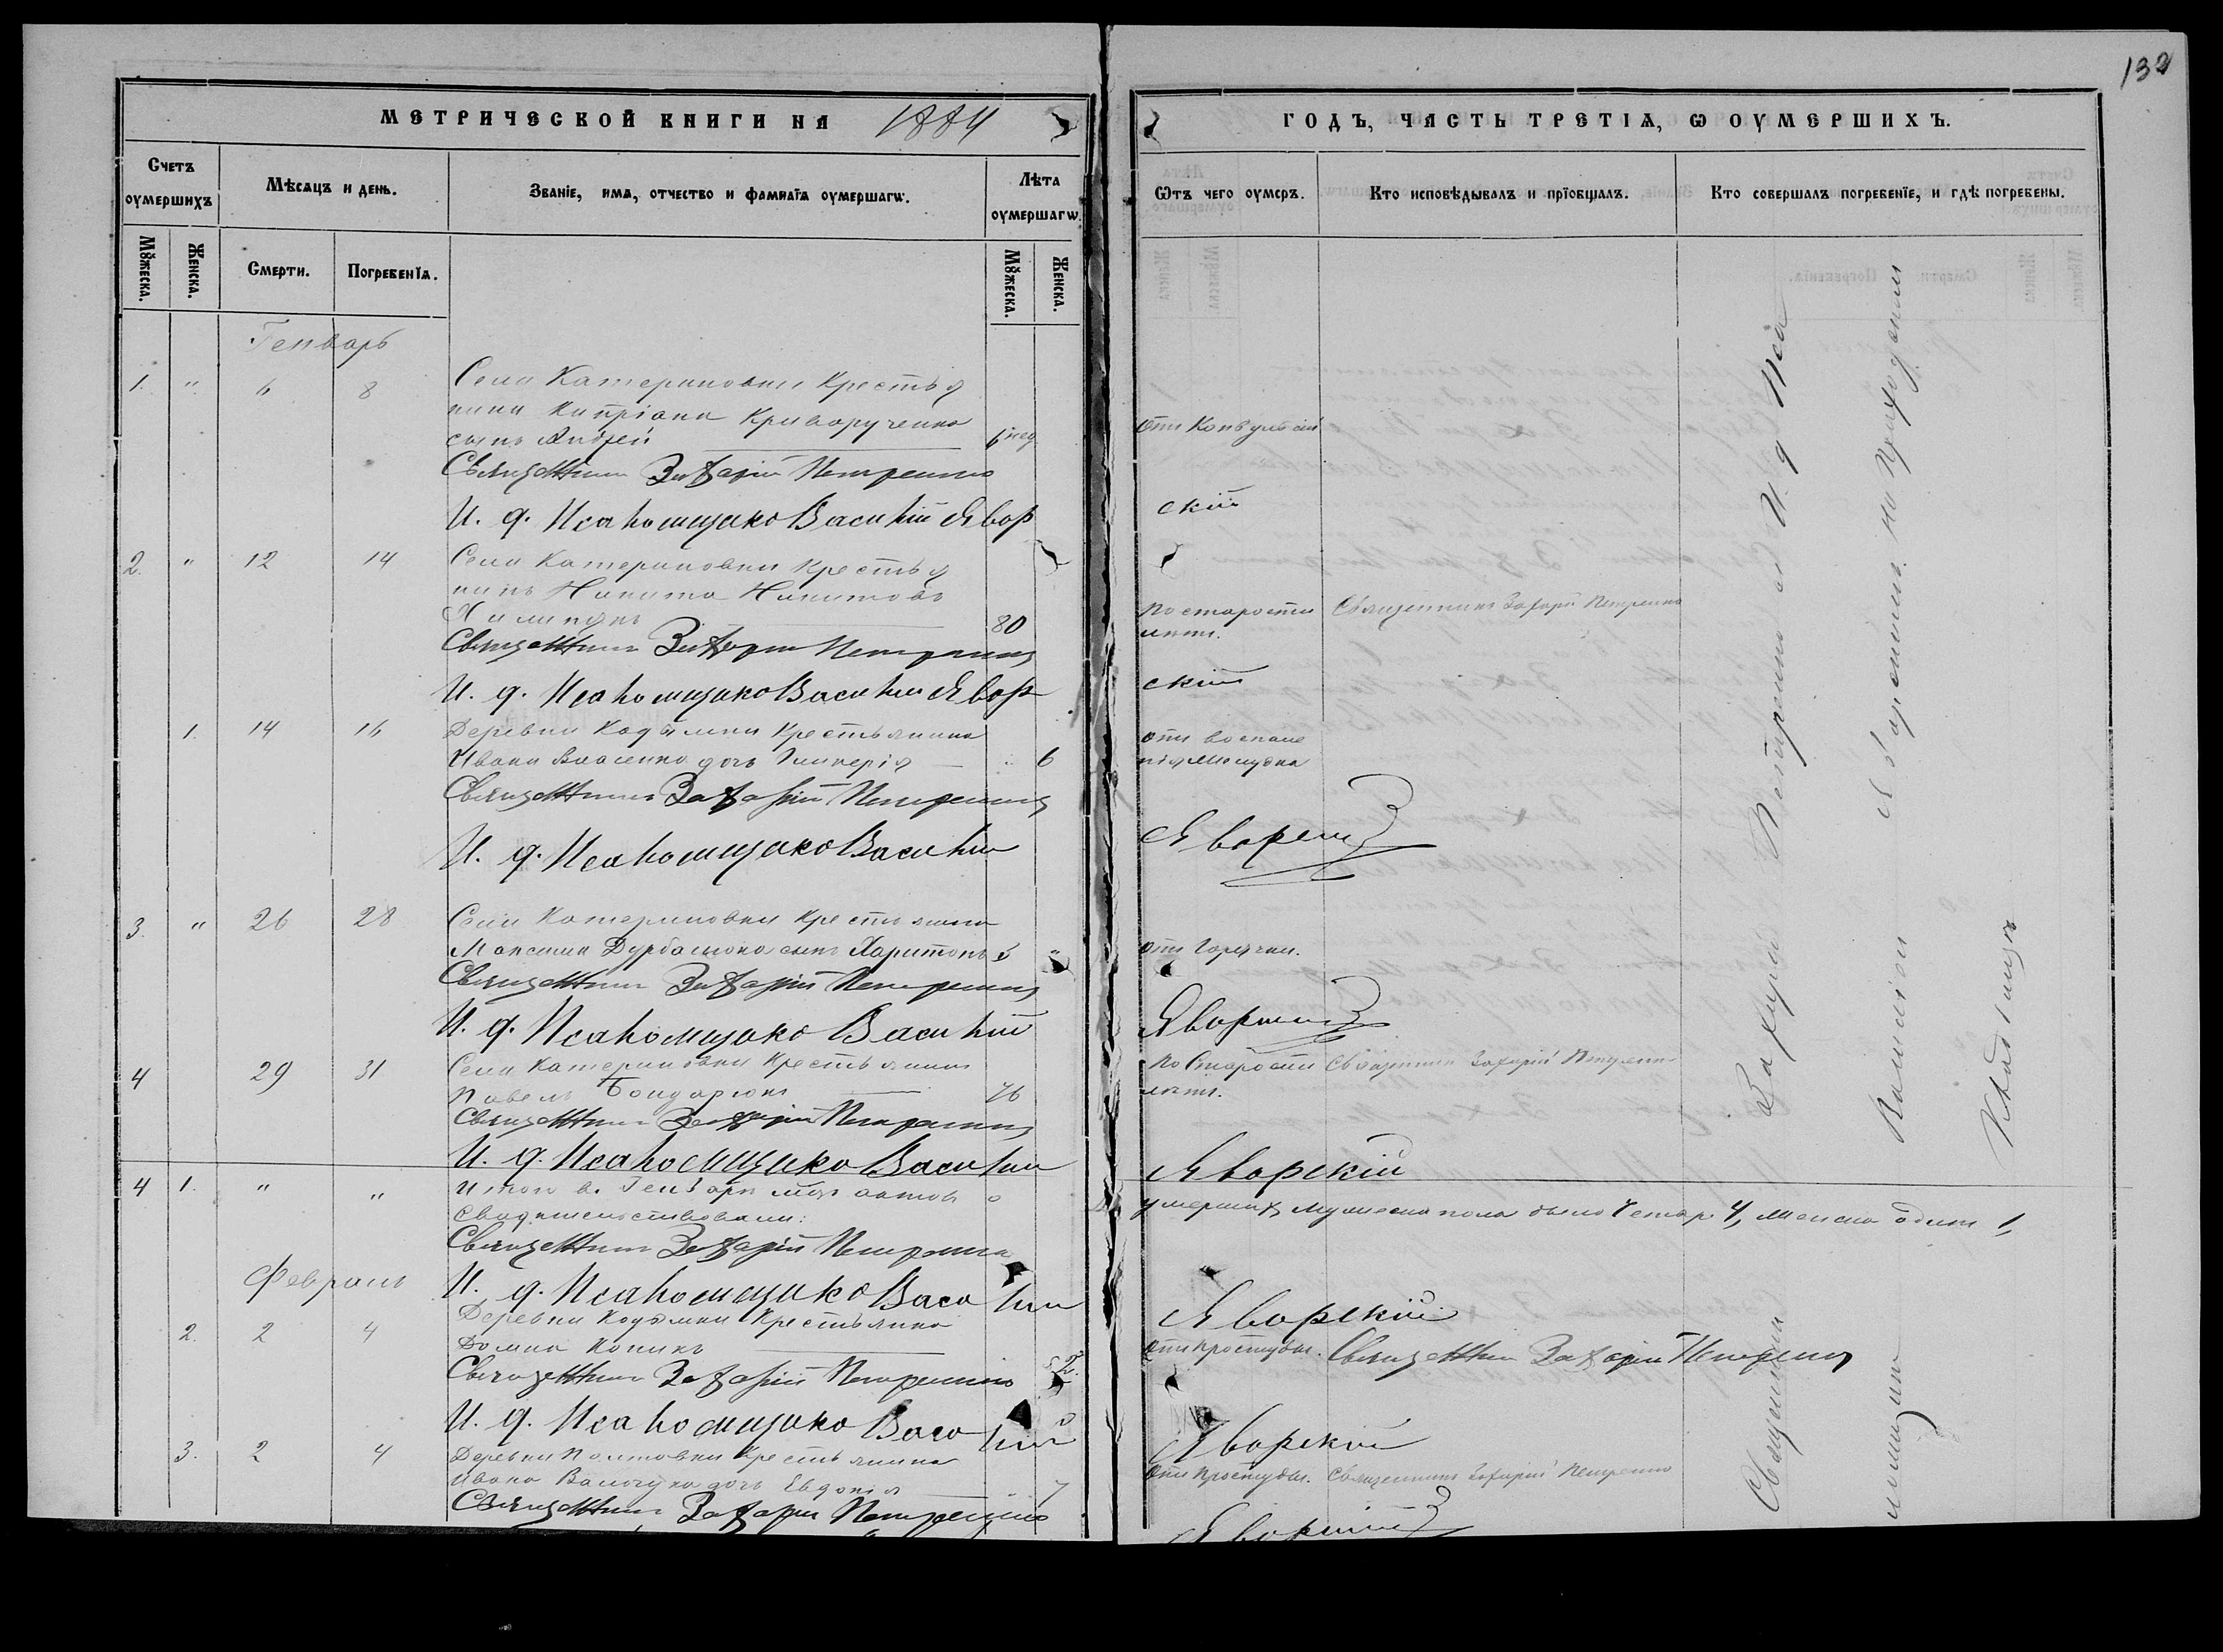 132
МЕТРИЧЕСКОЙ КНИГИ НА 1884
ГОДЪ, ЧАСТЬ ТРЕТІѦ, Ѡ ОУМЕРШИХЪ.
Счетъ оумершихъ
Мѣсѧцъ и день.
Званіе, имѧ, отчество и фамиліѧ оумершагѡ.
Лѣта оумершагѡ.
Ѿтъ чего оумеръ.
Кто исповѣдывалъ и пріобщалъ.
Кто совершалъ погребеніе, и гдѣ погребены.
Мꙋжеска.
Женска.
Смерти.
Погребеніѧ.
Мꙋжеска.
Женска.
Генварь
1. " 6 8 Села Катериновки Крестья
нина Кипріана Криворученка
сынъ Андрей 6 нед
Отъ Конвульсій
Священникъ Захарій Петренко
И. д. Псаломщика Василій Явор
скій
2. " 12 14 Села Катериновки Крестья
нинъ Никита Никитовъ
80
По старости Священникъ Захарій Петренко
лѣтъ.
Священникъ Захарій Петренко
И. д. Псаломщика Василій Явор
скій
1. 14 16 Деревни Кодымки Крестьянина
Ивана Власенко дочь Гликерія 6
Отъ воспале
нія Желудка
Священникъ Захарій Петренко
И. д. Псаломщика Василій
Яворскій
3. " 26 28 Села Катериновки Крестьянина
Максима Дурбалюка сынъ Харитонъ 3 "
Отъ Горячки.
Священникъ Захарій Петренко
И. д. Псаломщика Василій
Яворскій
4 29 31 Села Катериновки Крестьянинъ
Павелъ Бондарюкъ 76
По Старости Священникъ Захарій Петренко
лѣтъ.
Священникъ Захарій Петренко
И. д. Псаломщика Василій
Яворскій
4 1. " " Итого въ Генварѣ мѣс. актовъ о
умершихъ мужеска пола было Четыр. 4, Женска одинъ 1,
Свидѣтельствовали:
Священникъ Захарій Петренко
И. д. Псаломщика Василій
Яворскій
Февраль
2. 2 4 Деревни Кодымки Крестьянка
Домна
Отъ простуды. Священникъ Захарій Петренко
Священникъ Захарій Петренко
И. д. Псаломщика Василій
Яворскій
3. 2 4 Деревни Крестьянина
Ивана дочь Евдокія 7
Отъ Простуды. Священникъ Захарій Петренко
Священникъ Захарій Петренко
Яворскій
Священникъ Захарій Петренко съ И. д. Пса
ломщика Василіемъ Яворскимъ на Приходскомъ
Кладбищѣ